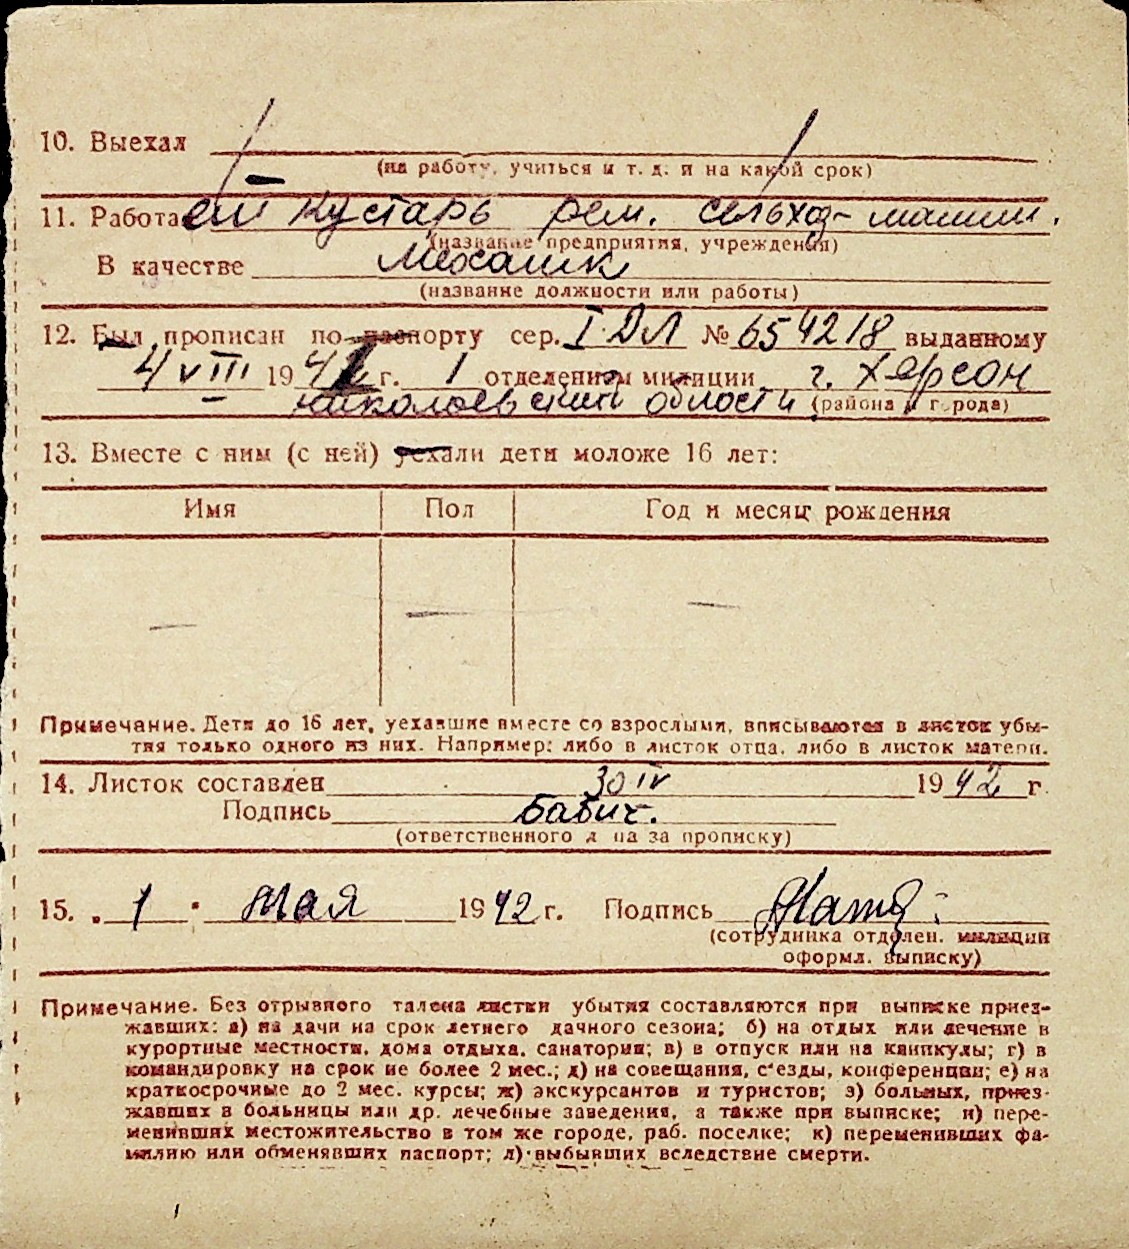 10. Выехал
(на работу, учиться и т. д. и на какой срок)
11. Работает кустарь рем. сельхоз-машин.
(название предприятия, учреждения)
В качестве механик
(название должности или работы)
12. Был прописан по паспорту сер. I ДЛ № 654218 выданному
4 VIII 194 г. 1 отделением милиции г. Херсон
николаевский области (района и города)
13. Вместе с ним (с ней) уехали дети моложе 16 лет:
Имя Пол Год и месяц рождения
— — —
Примечание. Дети до 16 лет, уехавшие вместе со взрослыми, вписываются в листок убы-
тия только одного из них. Например: либо в листок отца, либо в листок матери.
14. Листок составлен 30 IV 1942 г.
Подпись Бабич.
(ответственного л на за прописку)
15. „ 1 " мая 1942 г. Подпись
(сотрудника отделен. милиции
оформл. выписку)
Примечание. Без отрывного талона листки убытия составляются при выписке приез-
жавших: а) на дачи на срок летнего дачного сезона; б) на отдых или лечение в
курортные местности, дома отдыха, санатории; в) в отпуск или на каникулы; г) в
командировку на срок не более 2 мес.; д) на совещания, с'езды, конференции; е) на
краткосрочные до 2 мес. курсы; ж) экскурсантов и туристов; з) больных, приез-
жавших в больницы или др. лечебные заведения, а также при выписке; и) пере-
менивших местожительство в том же городе, раб. поселке; к) переменивших фа-
милию или обменявших паспорт; л) выбывших вследствие смерти.